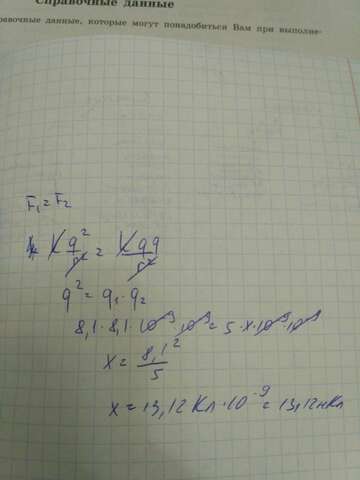 Справочные данные
равочные данные, которые могут понадобиться Вам при выполне-
F₁ = F₂
k q² / r² = k q q / r²
q² = q₁ · q₂
8,1 · 8,1 · 10⁻⁹ · 10⁻⁹ = 5 · x · 10⁻⁹ · 10⁻⁹
x = 8,1² / 5
x = 13,12 Кл · 10⁻⁹ = 13,12 нКл